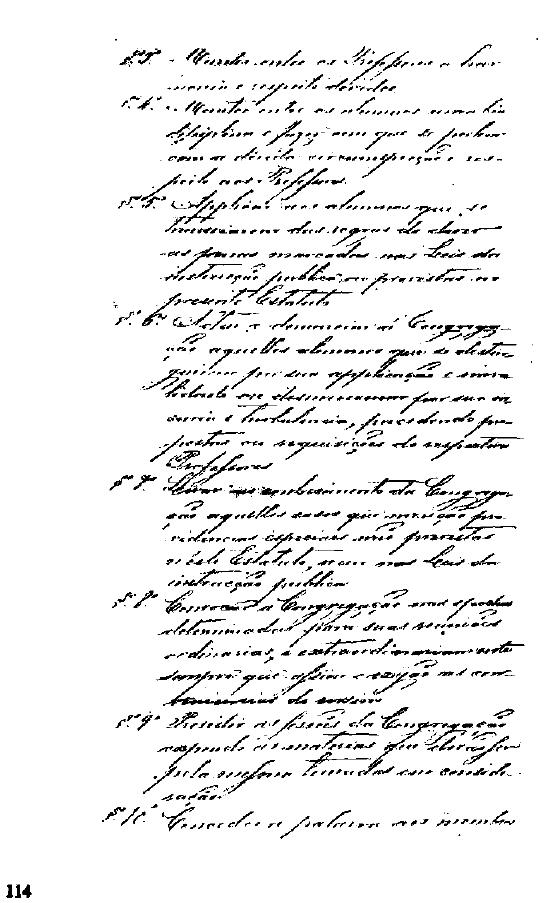 § 3º Manter entre os Professores a har-
monia e respeito devidos
§ 4º Manter entre os alumnos uma
disciplina e fazer com que se portem
com a devida circumspecção e res-
peito aos Professores.
§ 5º Applicar aos alumnos que se
das regras do dever
as penas marcadas nas Leis da
instrucção publica, ou previstas no
presente Estatuto
§ 6º e denunciar á Congrega-
ção aquelles alumnos que se distin-
guirem por sua applicação e mora-
lidade ou desmerecerem por sua in-
curia e turbulencia, precedendo pro-
postas ou requisições do respectivo
Professores
§ 7º Levar ao conhecimento da Congrega-
ção aquelles casos que mereção pro-
videncias especiaes não previstas
nêste Estatuto, nem nas Leis da
instrucção publica
§ 8º Convocar a Congregação nas épochas
determinadas para suas reuniões
ordinarias, e extraordinariamente
sempre que assim o exijão as con-
veniencias do ensino
§ 9º Presidir as sessões da Congregação
expondo as materias que devão ser
pela mesma tomadas em conside-
ração
§ 10º Conceder a palavra aos membros
114